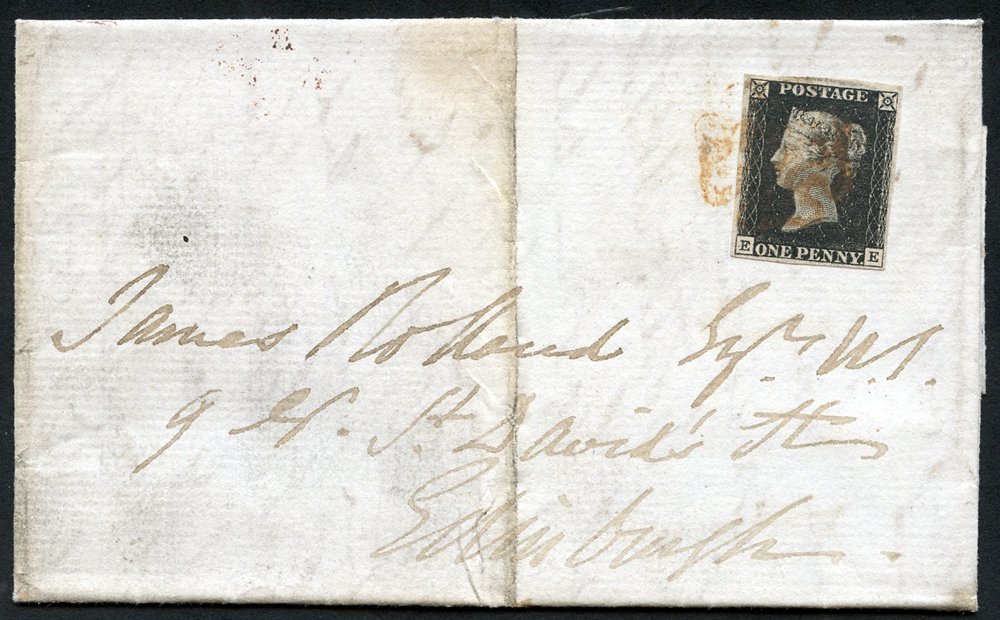 POSTAGE
E ONE PENNY E
James Rolland Esqr. W.S.
9 N. St. David's St
Edinburgh.